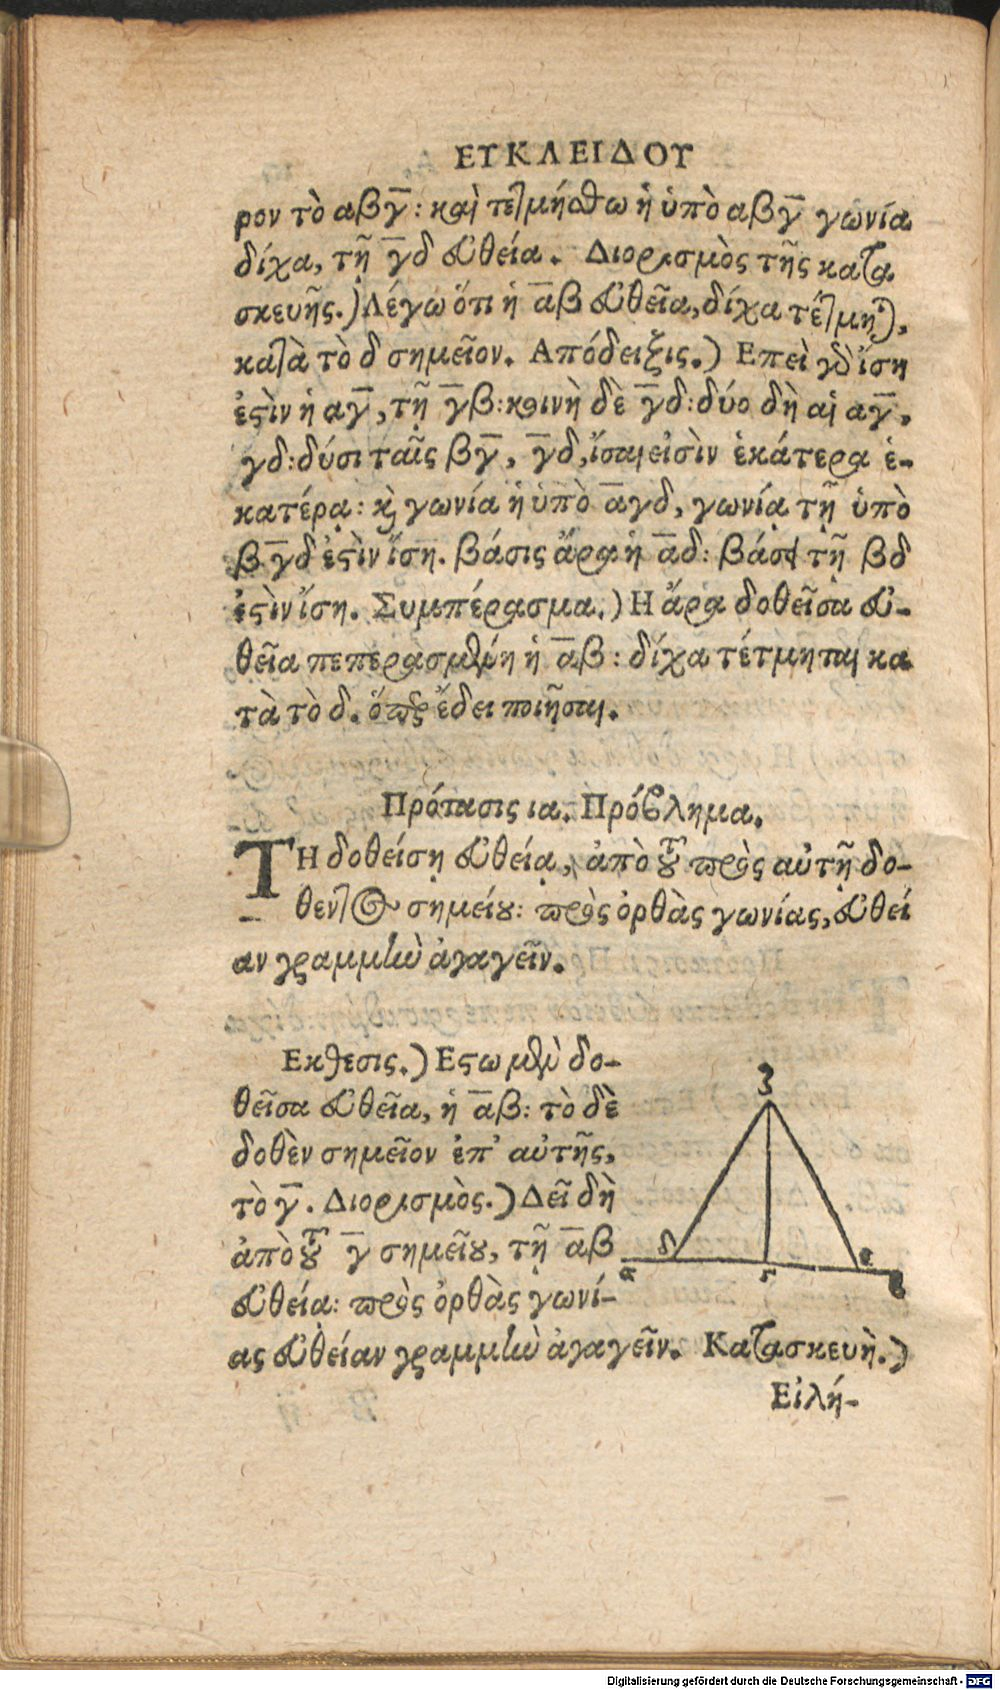 ΕΥΚΛΕΙΔΟΥ
ρον τὸ αβγ̅: καὶ τετμήσθω ἡ ὑπὸ αβγ̅ γωνία
δίχα, τῇ γ̅δ εὐθεία. Διορισμὸς τῆς κατα
σκευῆς.) Λέγω ὅτι ἡ α̅β εὐθεῖα, δίχα τέτμηται,
κατὰ τὸ δ σημεῖον. Απόδειξις.) Επεὶ γὰρ ἴση
ἐςὶν ἡ αγ̅, τῇ γ̅β: κοινὴ δὲ γ̅δ: δύο δὴ αἱ αγ̅,
γδ: δύσι ταῖς βγ̅, γ̅δ, ἴσαι εἰσὶν ἑκάτερα ἑ-
κατέρᾳ: καὶ γωνία ἡ ὑπὸ α̅γδ, γωνίᾳ τῇ ὑπὸ
βγ̅δ ἐςὶν ἴση. βάσις ἄρα ἡ α̅δ: βάσει τῇ βδ
ἐςὶν ἴση. Συμπέρασμα.) Η ἄρα δοθεῖσα εὐ-
θεῖα πεπερασμένη ἡ α̅β: δίχα τέτμηται κα
τὰ τὸ δ. ὅπερ ἔδει ποιῆσαι.
Πρότασις ια. Πρόβλημα.
ΤΗ δοθείσῃ εὐθείᾳ, ἀπὸ τοῦ πρὸς αὐτῇ δο-
θεντος σημείου: πρὸς ὀρθὰς γωνίας, εὐθεί
αν γραμμὴν ἀγαγεῖν.
Εκθεσις.) Εςω μὲν δο-
θεῖσα εὐθεῖα, ἡ α̅β: τὸ δὲ
δοθὲν σημεῖον ἐπ' αὐτῆς,
τὸ γ̅. Διορισμὸς.) Δεῖ δὴ
ἀπὸ τοῦ γ̅ σημεῖου, τῇ α̅β
εὐθείᾳ: πρὸς ὀρθὰς γωνί-
ας εὐθείαν γραμμὴν ἀγαγεῖν. Κατασκευὴ.)
Εἰλή-
ζ
δ
ε
α
γ
β
Digitalisierung gefördert durch die Deutsche Forschungsgemeinschaft - DFG